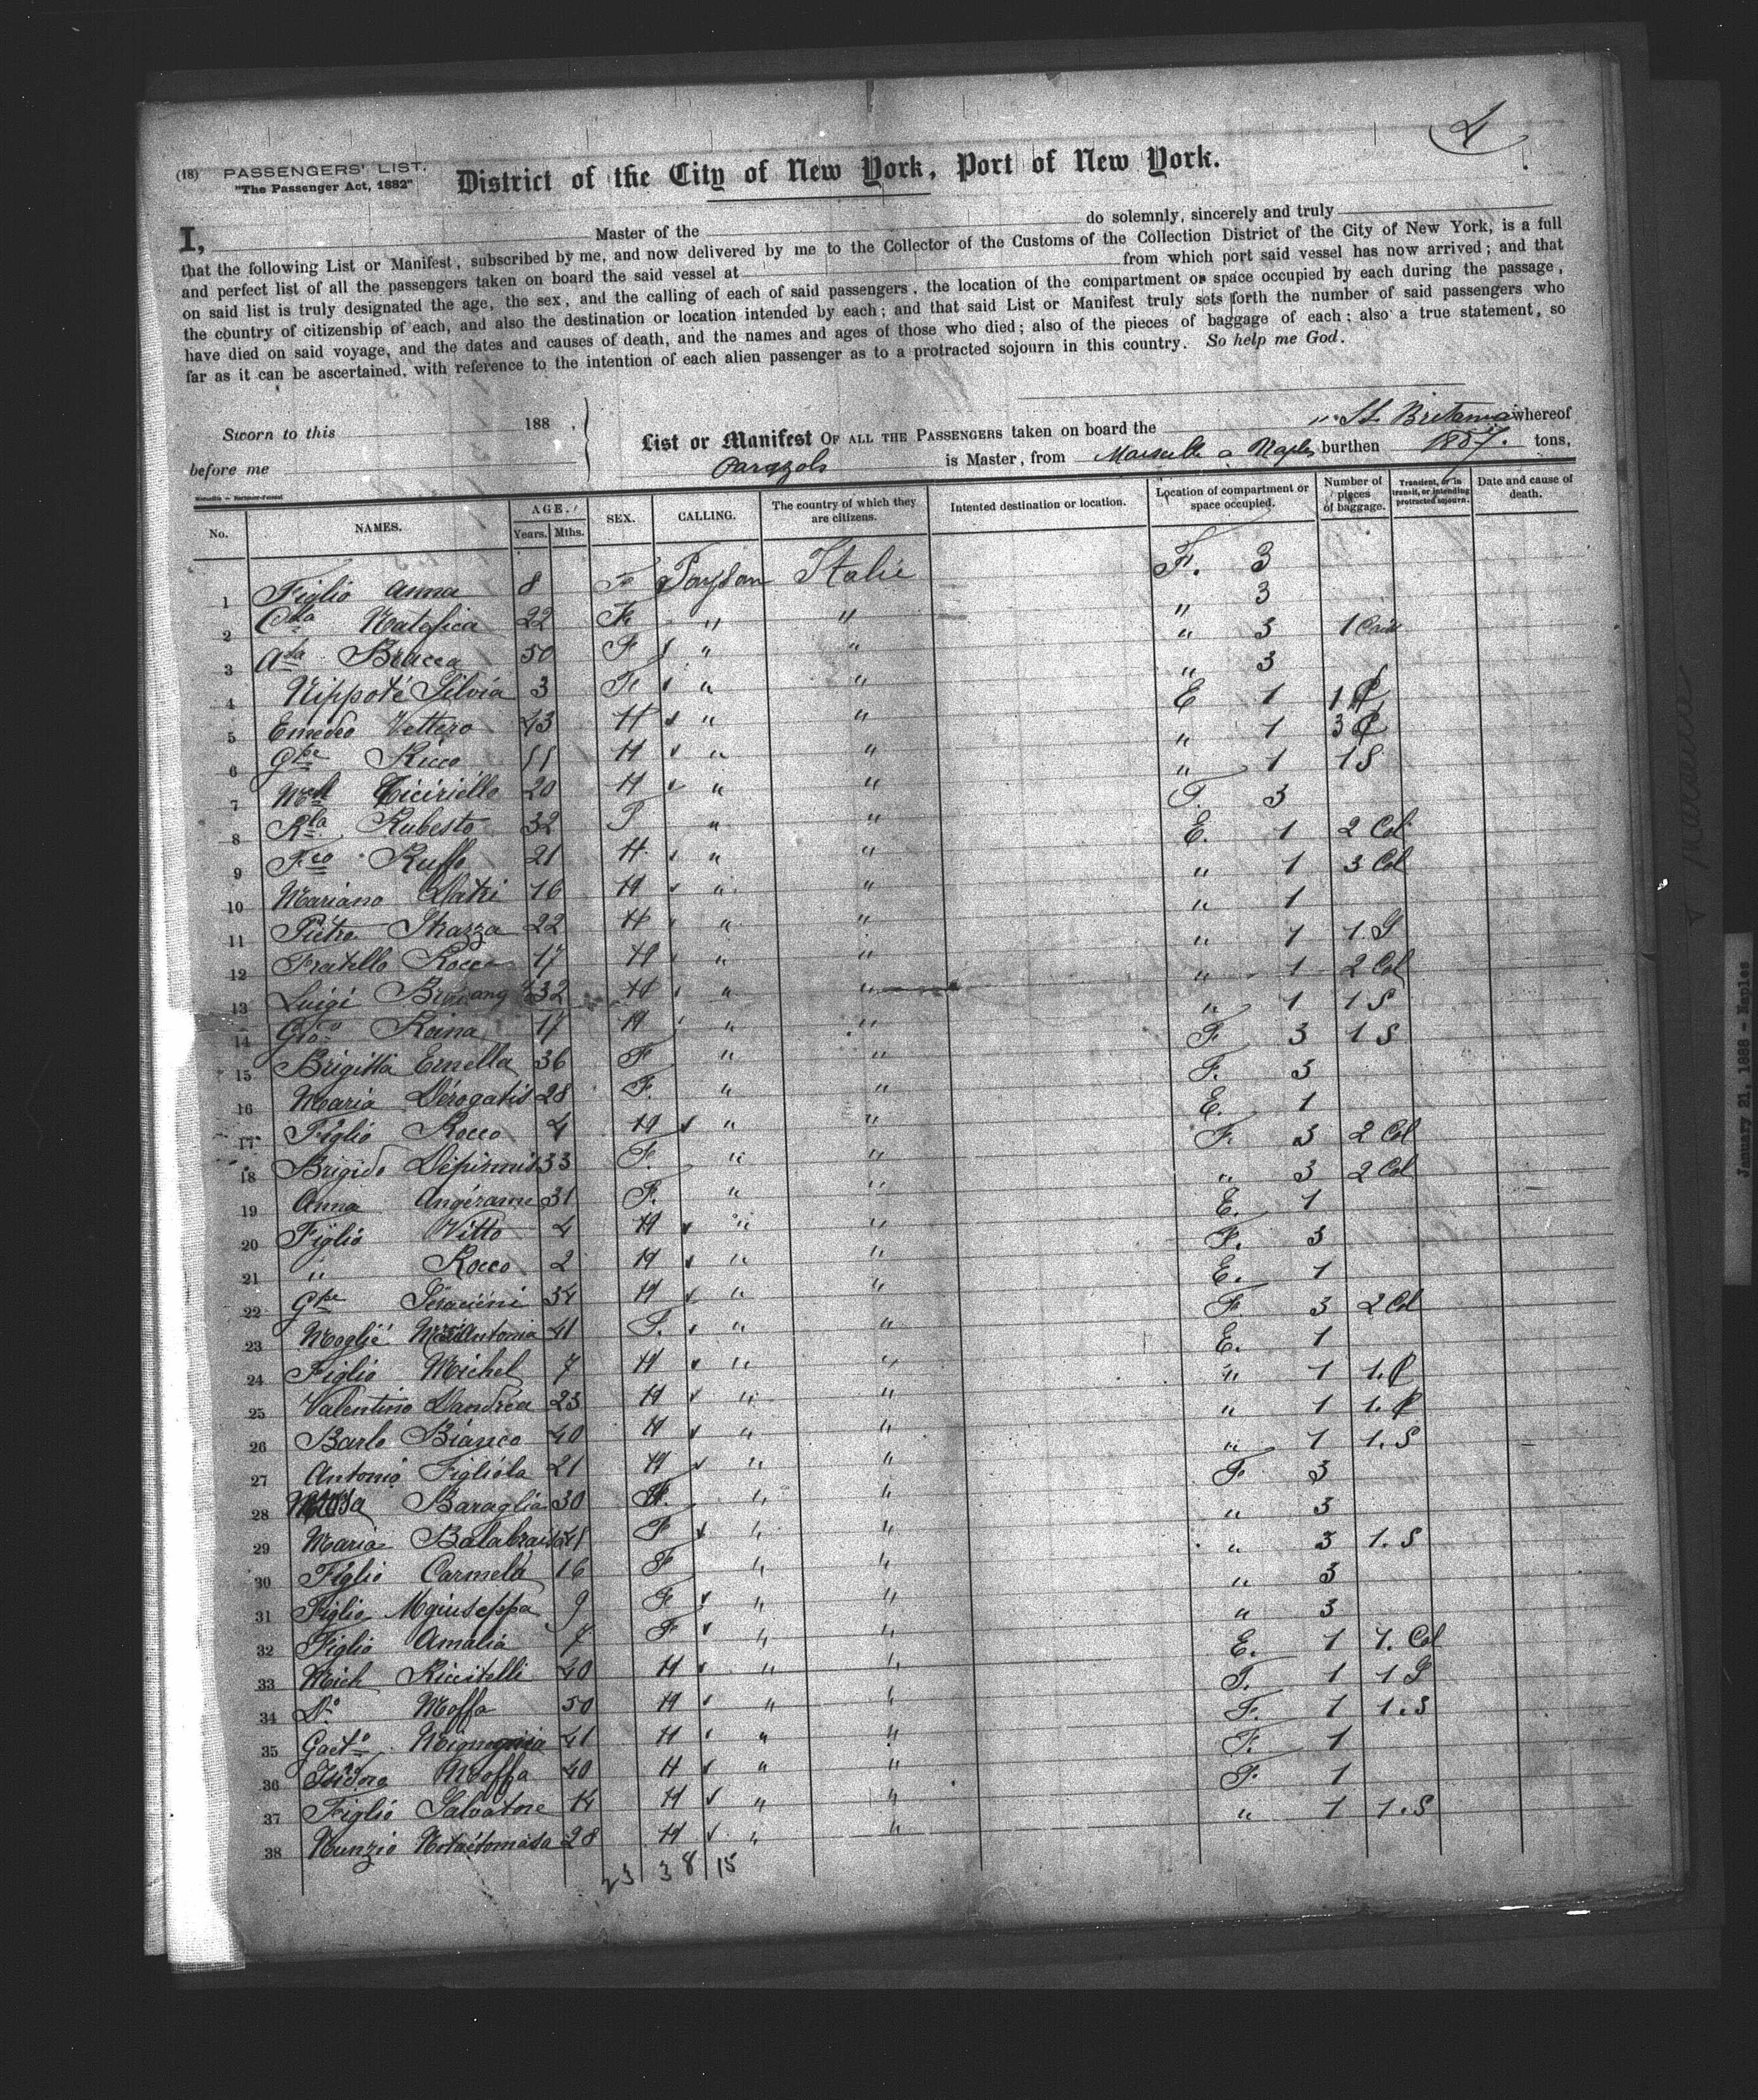 4
(18) PASSENGERS' LIST.
"The Passenger Act, 1882"
District of the City of New York, Port of New York.
I, Master of the do solemnly, sincerely and truly
that the following List or Manifest, subscribed by me, and now delivered by me to the Collector of the Customs of the Collection District of the City of New York, is a full
and perfect list of all the passengers taken on board the said vessel at from which port said vessel has now arrived; and that
on said list is truly designated the age, the sex, and the calling of each of said passengers, the location of the compartment or space occupied by each during the passage,
the country of citizenship of each, and also the destination or location intended by each; and that said List or Manifest truly sets forth the number of said passengers who
have died on said voyage, and the dates and causes of death, and the names and ages of those who died; also of the pieces of baggage of each; also a true statement, so
far as it can be ascertained, with reference to the intention of each alien passenger as to a protracted sojourn in this country. So help me God.
Sworn to this 188 ,
before me
List or Manifest OF ALL THE PASSENGERS taken on board the St Britannia whereof
is Master, from Marseille a Naples burthen 1887. tons,
No. NAMES. AGE. Years. Mths. SEX. CALLING. The country of which they are citizens. Intented destination or location. Location of compartment or space occupied. Number of pieces of baggage. Transient, or in transit, or intending protracted sojourn. Date and cause of death.
1 Figlio Anna 8 F Paysan Italie F. 3
2 Natofica 22 F " " " 3
3 Bracca 50 F " " " 3 1 Cais
4 Nippote Silvia 3 F " " " 3
5 Emedeo Vettero 43 H " " E 1 1 C
6 Gpe Ricco H " " " 1 3 C
7 Ciciriello 20 H " " " 1 1 S
8 Rla Rubesto 32 F " " F. 3
9 Fco Ruffo 21 H " " E. 1 2 Col
10 Mariano 16 H " " " 1 3 Col
11 Pietro Strazza 22 H " " " 1
12 Fratello Rocco 17 H " " " 1 1. S
13 Luigi 32 H " " " 1 2 Col
14 Reina 17 H " " " 1 1 S
15 Brigitta Ernella 36 F " " F 3 1 S
16 Maria Derogatis 28 F. " " F. 3
17 Figlio Rocco 4 H " " E. 1
18 Brigida 33 F. " " F. 3 2 Col
19 Anna Angerame 31 F. " " " 3 2 Col
20 Figlio Vitto 4 H " " E. 1
21 " Rocco 2 H " " F. 3
22 Gpe Seracieni 34 H " " E. 1
23 Moglie Mariantonia 41 F. " " F. 3 2 Col
24 Figlio Michel 7 H " " E. 1
25 Valentino Dandrea 23 H " " " 1 1. C
26 Barlo Bianco 40 H " " " 1 1. C
27 Antonio Figliola 21 H " " " 1 1. S
28 Baraglia 30 F. " " F 3
29 Maria F " " " 3
30 Figlio Carmela 16 F " " " 3 1. S
31 Figlio Mgiuseppa 9 F " " " 3
32 Figlio Amalia 7 F " " " 3
33 Mich Riccitelli 40 H " " E. 1 1. Col
34 Do Moffa 50 H " " F. 1 1 S
35 Gaeto 41 H " " F. 1 1. S
36 Isidoro Moffa 40 H " " F. 1
37 Figlio Salvatore 14 H " " F 1
38 Nunzio 28 H " " " 1 1. S
23 38 15
January 21, 1888 - Naples